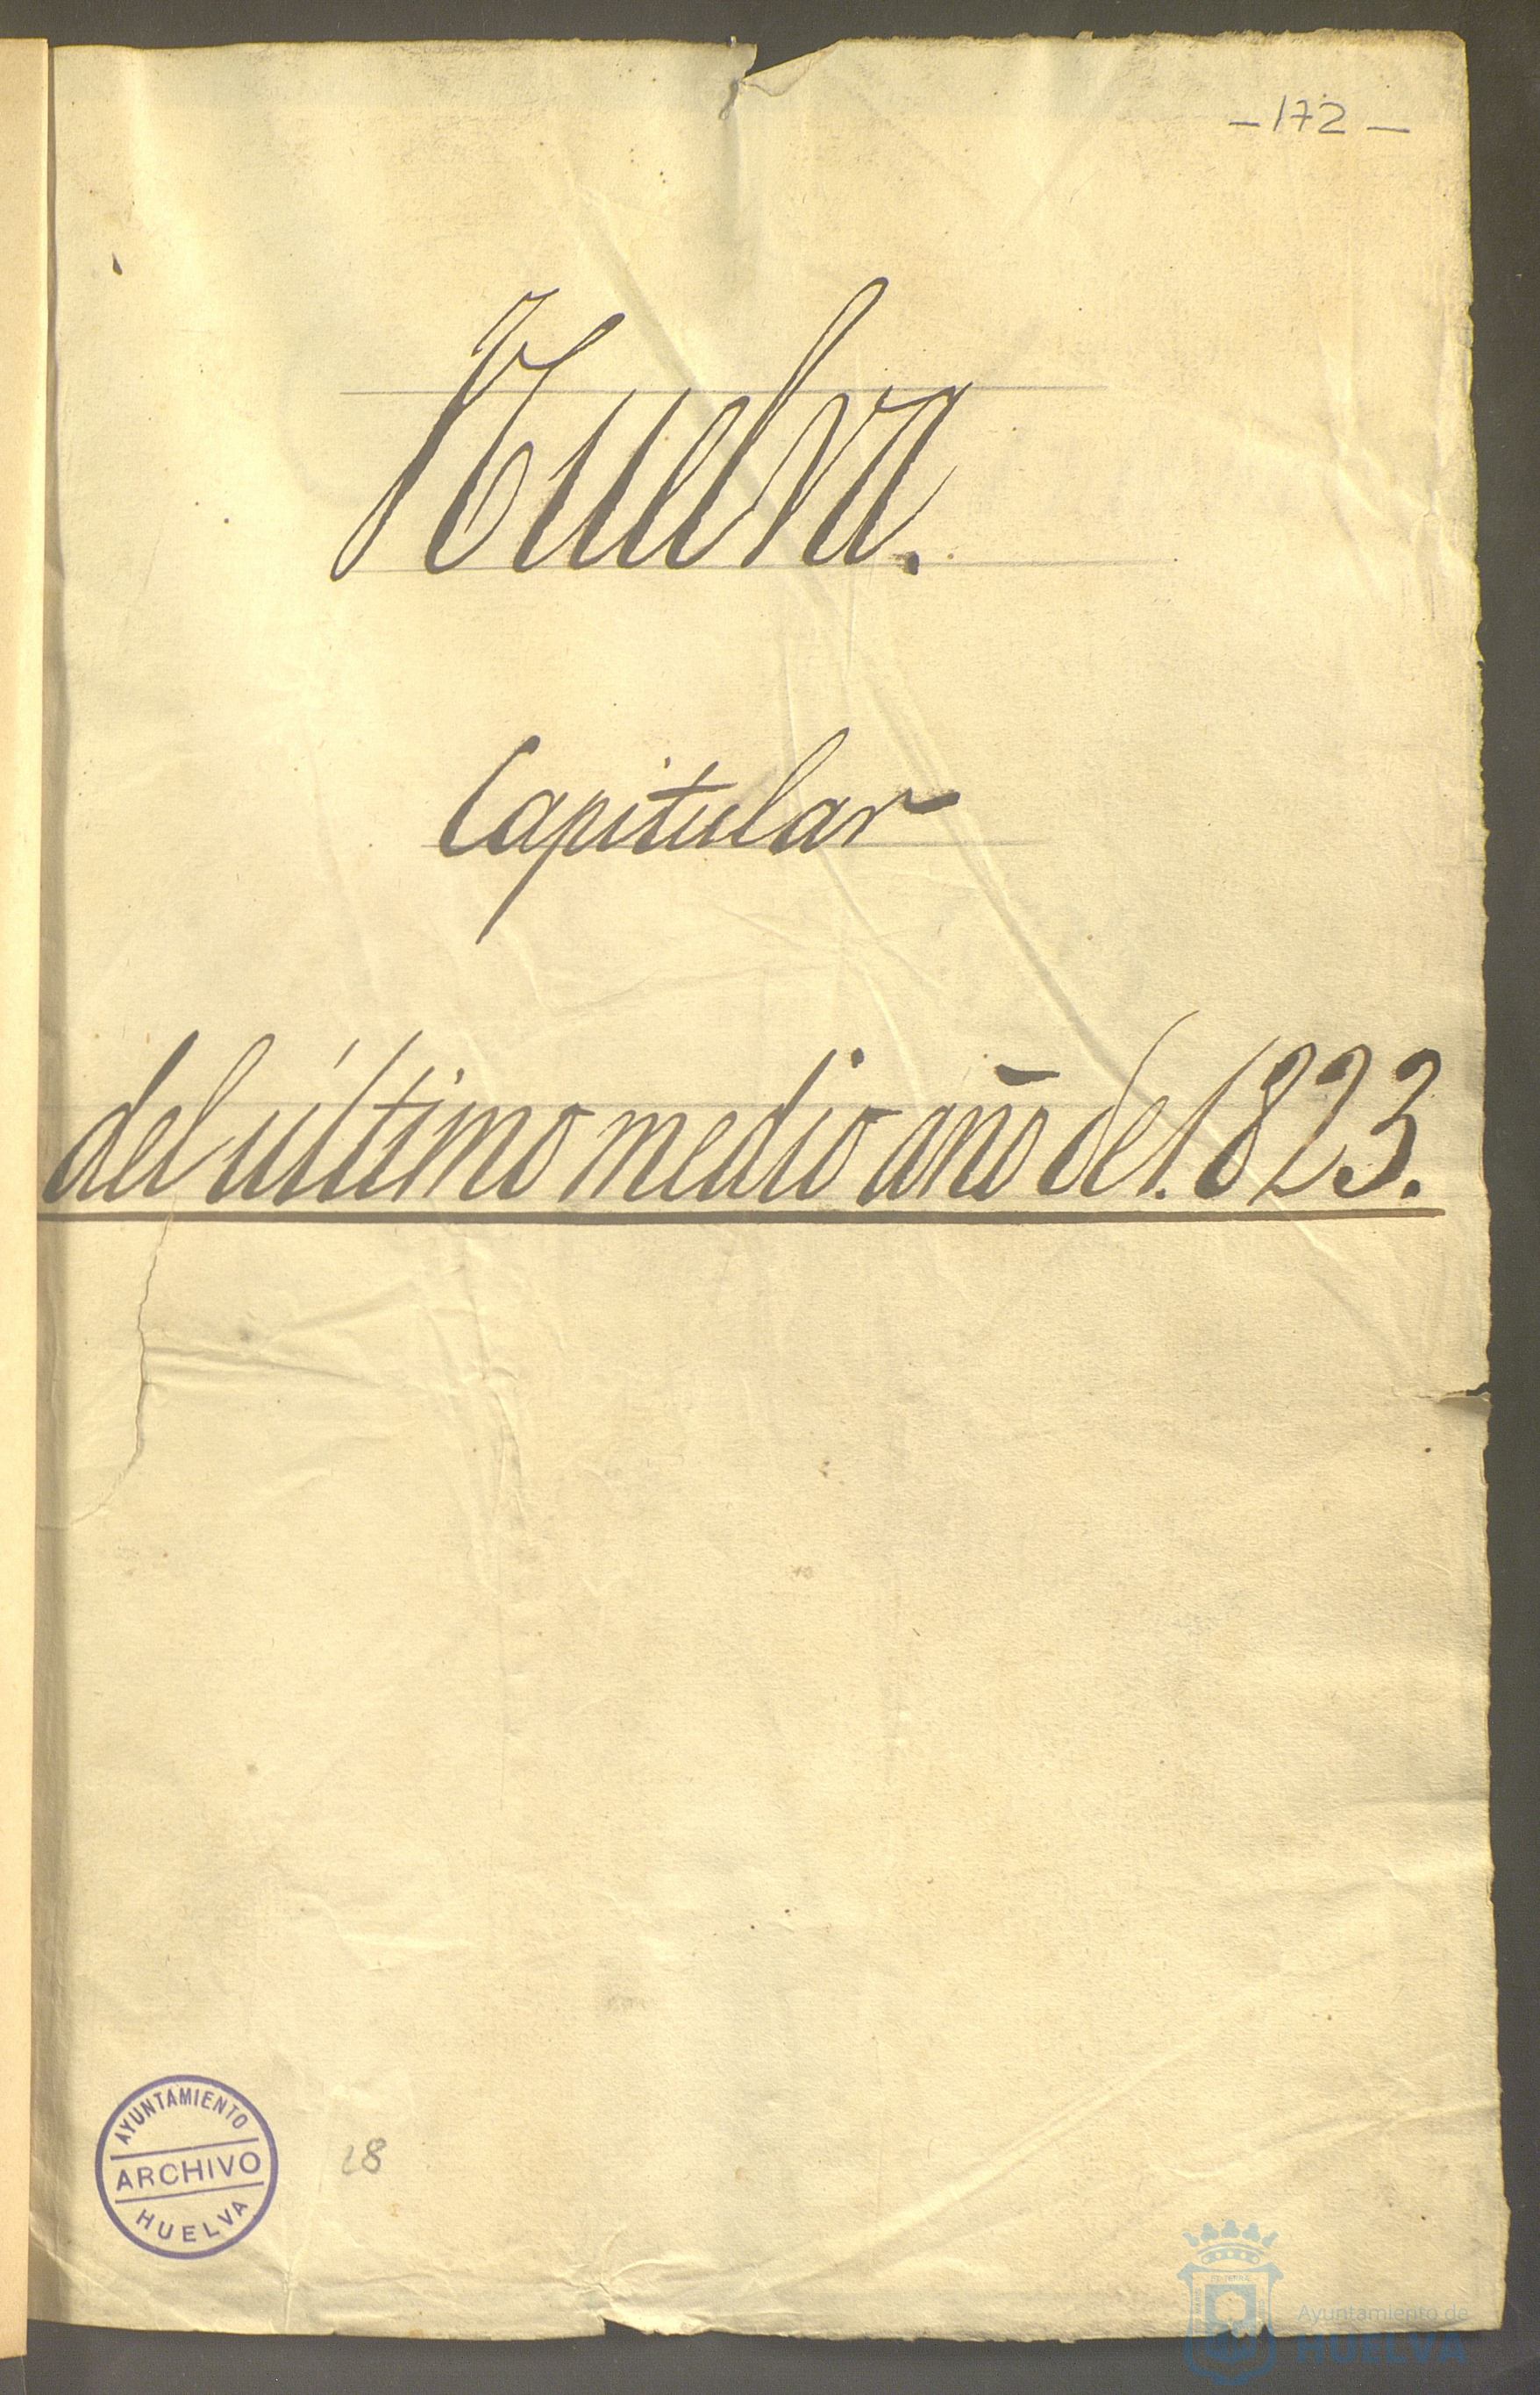 – 172 –
Huelva.
Capitular
del último medio año de 1.823.
AYUNTAMIENTO
ARCHIVO
HUELVA
28
Ayuntamiento de
HUELVA